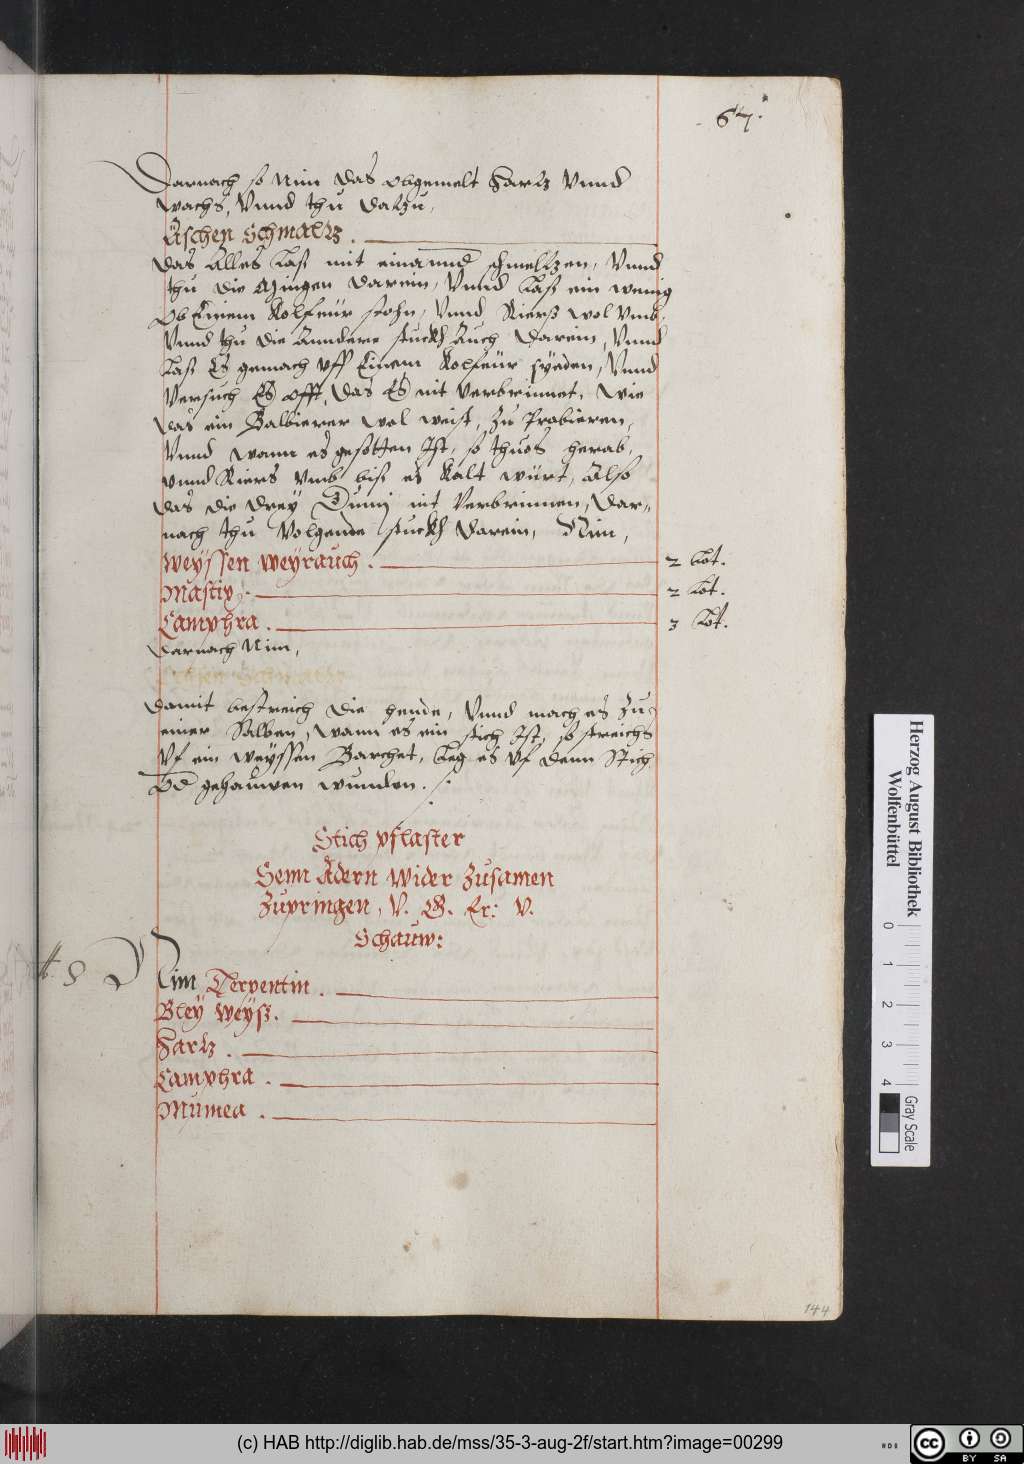 67.
Darnach so Nim das obgemelt Hartz Vnnd
wachs, Vnnd thu datzu,
Äschen Schmaltz.
das Alles Laß mit einannd schmeltzen, Vnnd
thu die Ding darein, Vnnd Laß ein wenig
ob Einem Kolfeür stehn, Vnnd Rierß wol vmb.
Vnnd thu die Anndere stuckh Auch darein, Vnnd
Laß Es gemach vff Einem Kolfeür syeden, Vnnd
Versuch Es offt, das Es nit verbrinnet, wie
das ein Balbierer wol weist, zu Probieren,
Vnnd wann es gesotten Ist, so thuos herab,
vnnd Riers vmb biß es Kalt würt, Also
das die drey Gumj nit Verbrinnen, Dar-
nach thu Volgende stuckh darein, Nim,
Weyssen Weyrauch. 2 Lot.
Mastix. 2 Lot.
Camphra. 3 Lot.
Darnach Nim,
damit bestreich die hende, Vnnd mach es zu
einer Salben, wann es ein stich Ist, so streichs
Vf ein weyssen Barchet, Leg es Vf denn Stich
Od gehauwen wunden.
Stich pflaster
Senn Ädern Wider Zusamen
Zupringen, V. G. Er: V.
Schauw:
8 Nim Terpentin.
Bley Weyß.
Hartz.
Camphra.
Mumea.
144
Herzog August Bibliothek
Wolfenbüttel
0 1 2 3 4
Gray Scale
(c) HAB http://diglib.hab.de/mss/35-3-aug-2f/start.htm?image=00299
cc BY SA